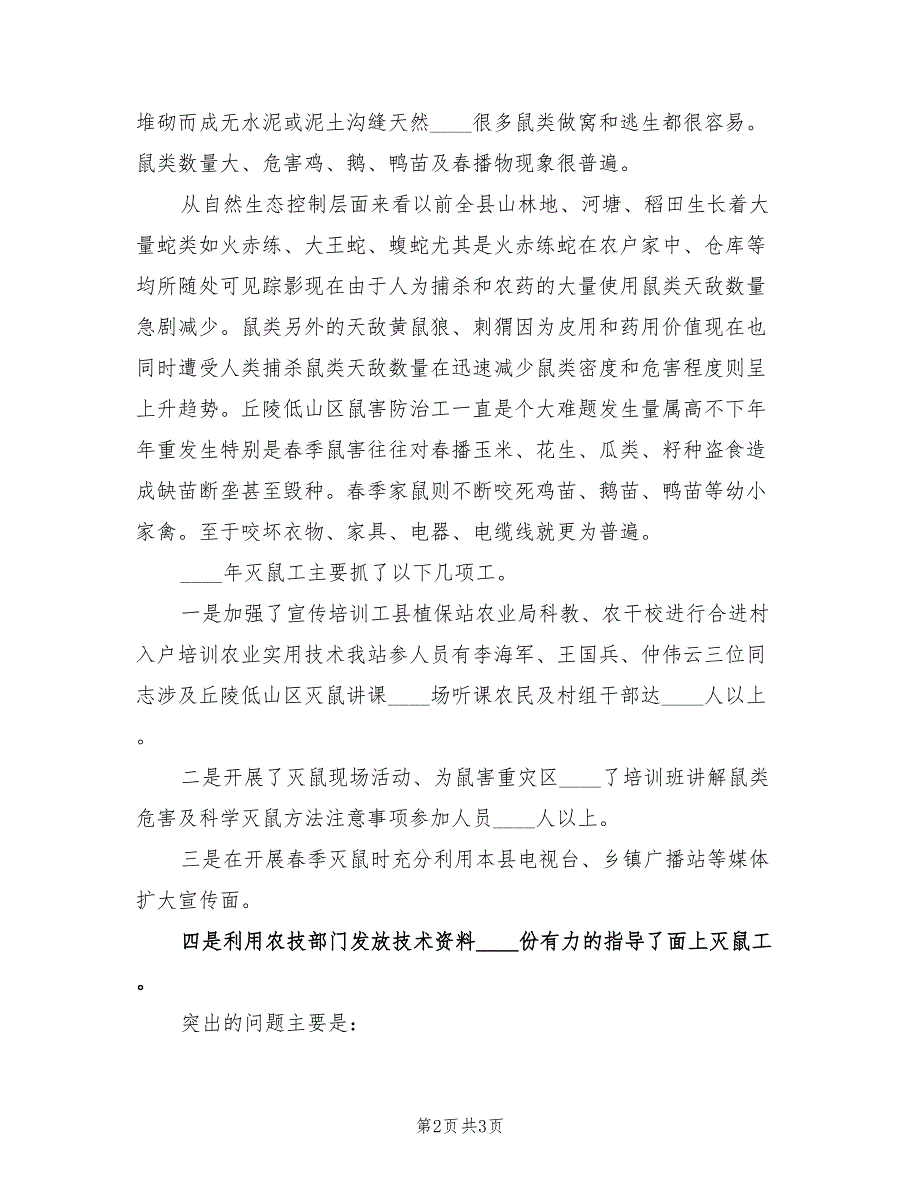 堆砌而成无水泥或泥土沟缝天然____很多鼠类做窝和逃生都很容易。
鼠类数量大、危害鸡、鹅、鸭苗及春播物现象很普遍。
从自然生态控制层面来看以前全县山林地、河塘、稻田生长着大
量蛇类如火赤练、大王蛇、蝮蛇尤其是火赤练蛇在农户家中、仓库等
均所随处可见踪影现在由于人为捕杀和农药的大量使用鼠类天敌数量
急剧减少。鼠类另外的天敌黄鼠狼、刺猬因为皮用和药用价值现在也
同时遭受人类捕杀鼠类天敌数量在迅速减少鼠类密度和危害程度则呈
上升趋势。丘陵低山区鼠害防治工一直是个大难题发生量属高不下年
年重发生特别是春季鼠害往往对春播玉米、花生、瓜类、籽种盗食造
成缺苗断垄甚至毁种。春季家鼠则不断咬死鸡苗、鹅苗、鸭苗等幼小
家禽。至于咬坏衣物、家具、电器、电缆线就更为普遍。
____年灭鼠工主要抓了以下几项工。
一是加强了宣传培训工县植保站农业局科教、农干校进行合进村
入户培训农业实用技术我站参人员有李海军、王国兵、仲伟云三位同
志涉及丘陵低山区灭鼠讲课____场听课农民及村组干部达____人以上
。
二是开展了灭鼠现场活动、为鼠害重灾区____了培训班讲解鼠类
危害及科学灭鼠方法注意事项参加人员____人以上。
三是在开展春季灭鼠时充分利用本县电视台、乡镇广播站等媒体
扩大宣传面。
四是利用农技部门发放技术资料____份有力的指导了面上灭鼠工
。
突出的问题主要是：
第2页共3页